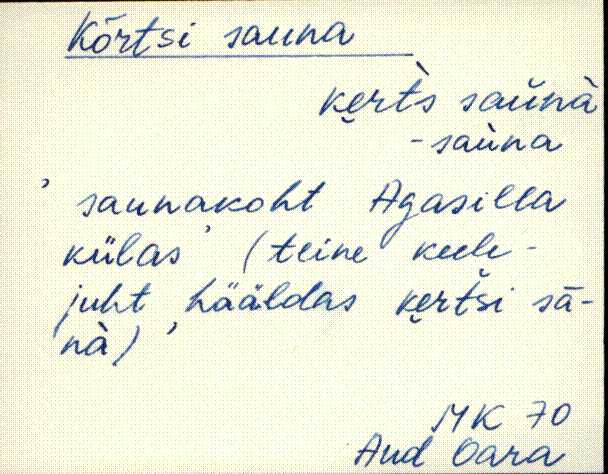 Kõrtsi sauna
ke̮rt̀s saŭnà
-saùna
’saunakoht Agasilla
külas’ (teine keele-
juht hääldas ke̮rt́si sā-
nà)’
MK 70
And Oara